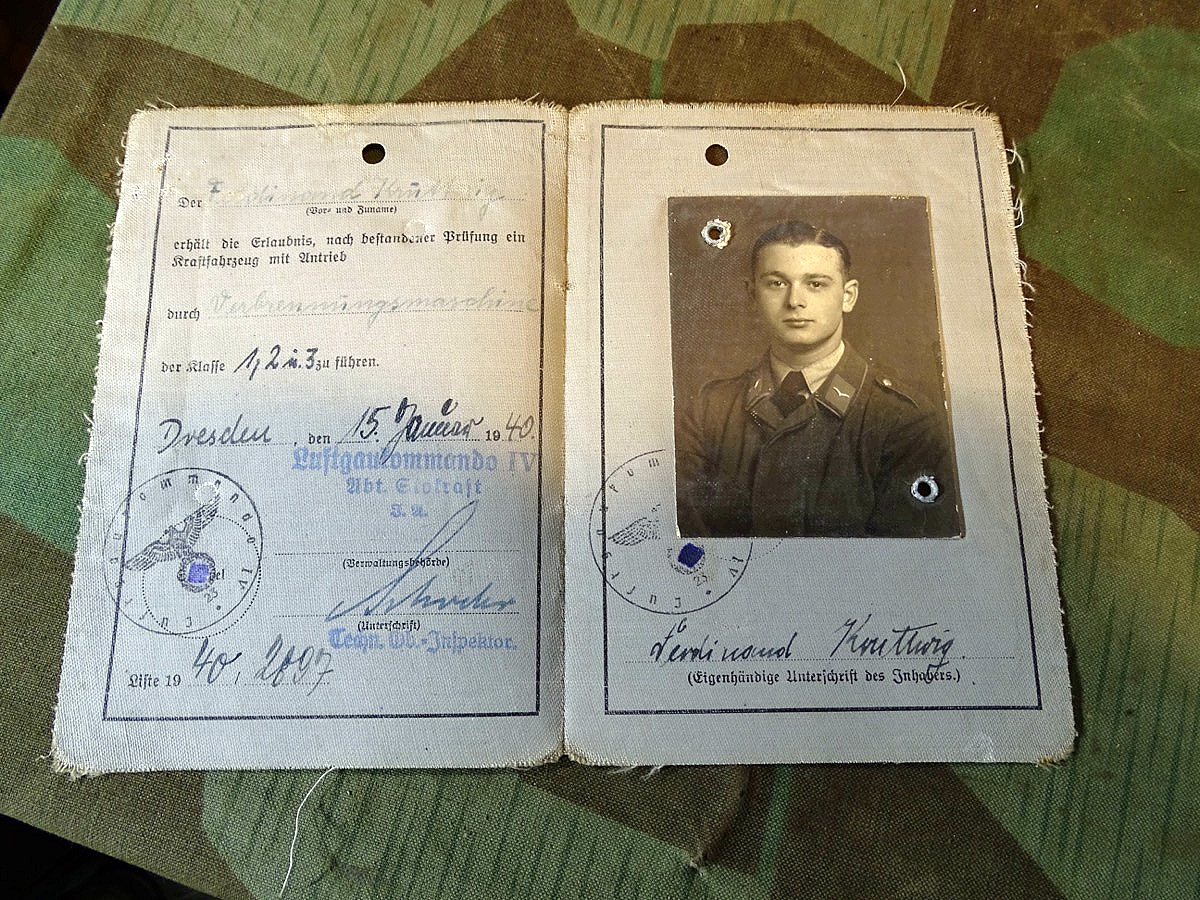 Der Ferdinand Kruttwig
(Vor- und Zuname)
erhält die Erlaubnis, nach bestandener Prüfung ein
Kraftfahrzeug mit Antrieb
durch Verbrennungsmaschine
der Klasse 1, 2 u. 3 zu führen.
Dresden, den 15. Januar 1940.
Luftgaukommando IV
Abt. Stokraft
I. A.
(Verwaltungsbehörde)
(Unterschrift)
Techn. Ob.-Inspektor.
Luftgaukommando IV
23
Liste 1940. 2897
Luftgaukom IV
23
Ferdinand Kruttwig.
(Eigenhändige Unterschrift des Inhabers.)